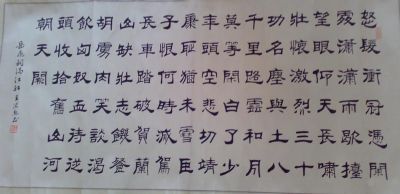 怒髮衝冠憑闌
處瀟瀟雨歇擡
望眼仰天長嘯
壯懷激烈三十
功名塵與土八
千里路雲和月
莫等閒白了少
年頭空悲切靖
康恥猶未雪臣
子恨何時滅駕
長車踏破賀蘭
山缺壯志飢餐
胡虜肉笑談渴
飲匈奴血待從
頭收拾舊山河
朝天闕
岳飛詞滿江紅